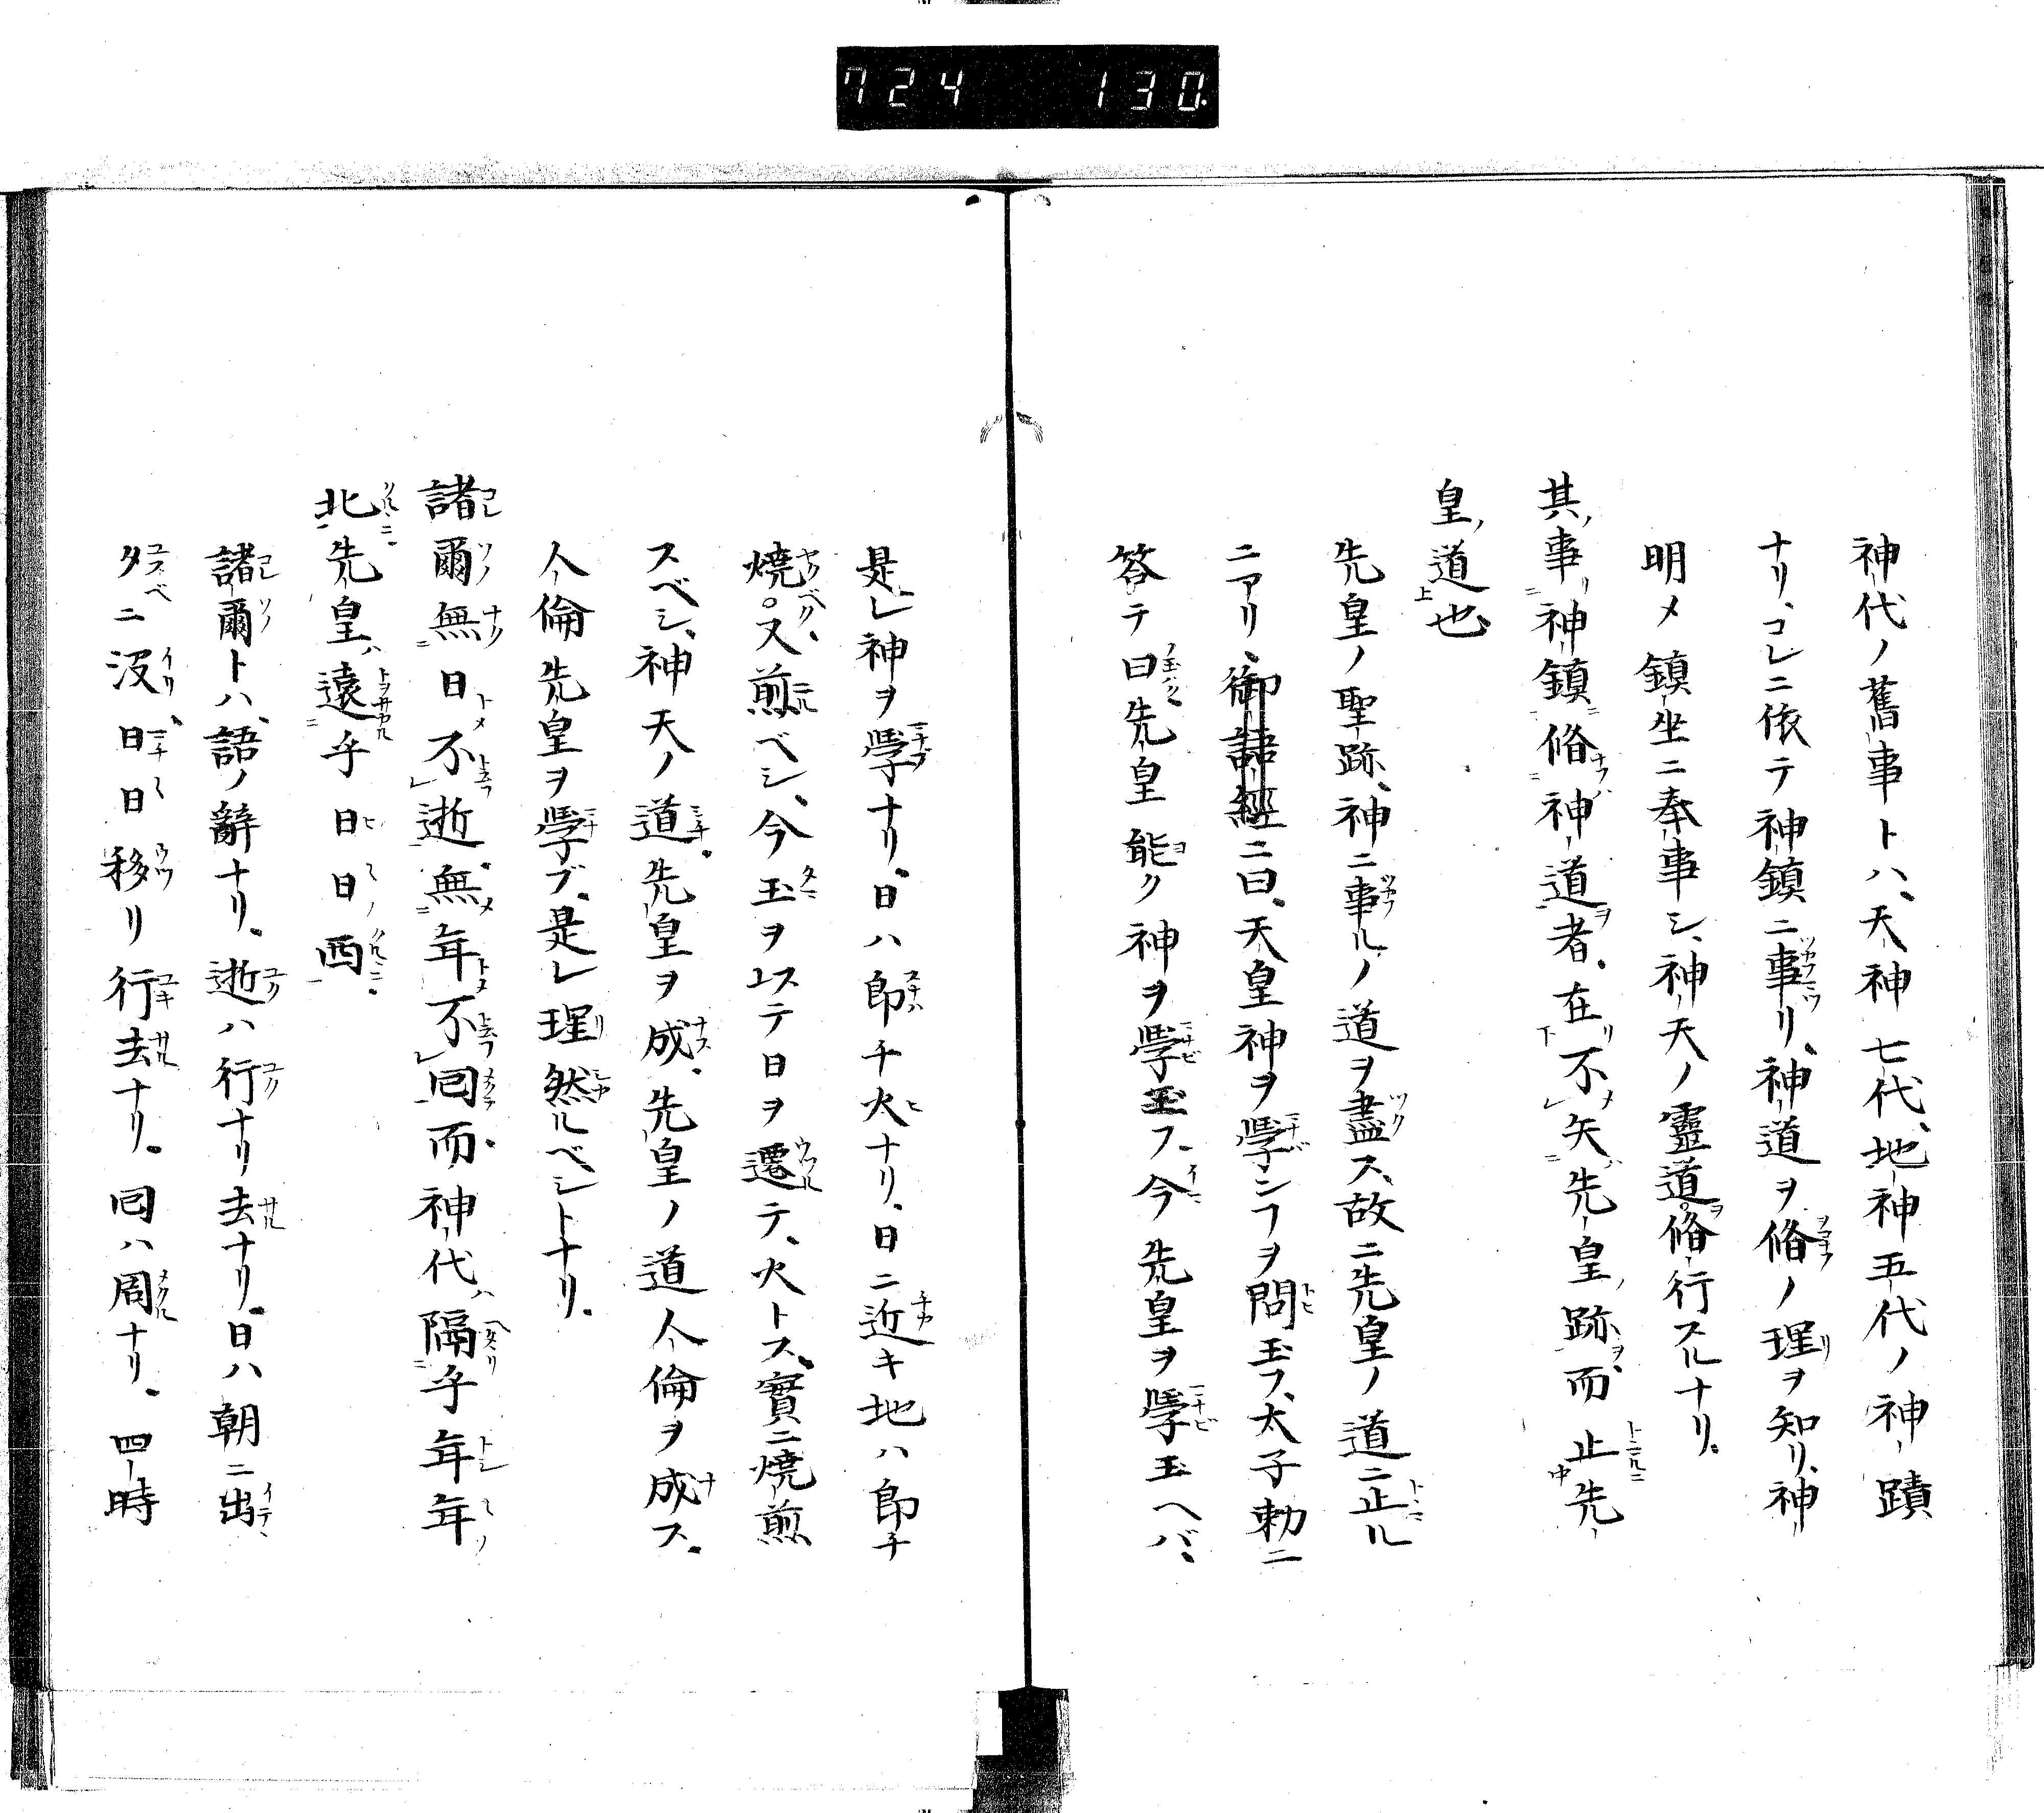 724 130
神代ノ舊事トハ、天神七代、地神五代ノ神蹟
ナリ、コレニ依テ神鎮ニ事リ、神道ヲ脩ノ理ヲ知リ、神
明メ鎮坐ニ奉事シ、神天ノ靈道ヲ脩行スルナリ。
其ノ事リ神鎮脩神道者、在不矣先皇ノ跡ヲ、而止先
皇ノ道也
先皇ノ聖跡、神ニ事ルノ道ヲ盡ス、故ニ先皇ノ道ニ止ル
ニアリ、御語經ニ曰、天皇神ヲ學ンフヲ問玉フ、太子勅ニ
答テ曰先皇能ク神ヲ學玉フ、今先皇ヲ學玉ヘバ、
是レ神ヲ學ナリ、日ハ即チ火ナリ、日ニ近キ地ハ即チ
燒。又煎ベシ、今玉ヲ以テ日ヲ遷テ、火トス、實ニ燒煎
スベシ、神天ノ道、先皇ヲ成、先皇ノ道人倫ヲ成ス。
人倫先皇ヲ學ブ、是レ理然ルベシトナリ。
諸爾無日不逝、無年不囘而神代ハ隔乎年年ノ
北先皇ハ遠乎日日ノ西。
諸爾トハ、語ノ辭ナリ、逝ハ行ナリ去ナリ。日ハ朝ニ出
夕ニ沒、日日移リ行去ナリ。囘ハ周ナリ、四時